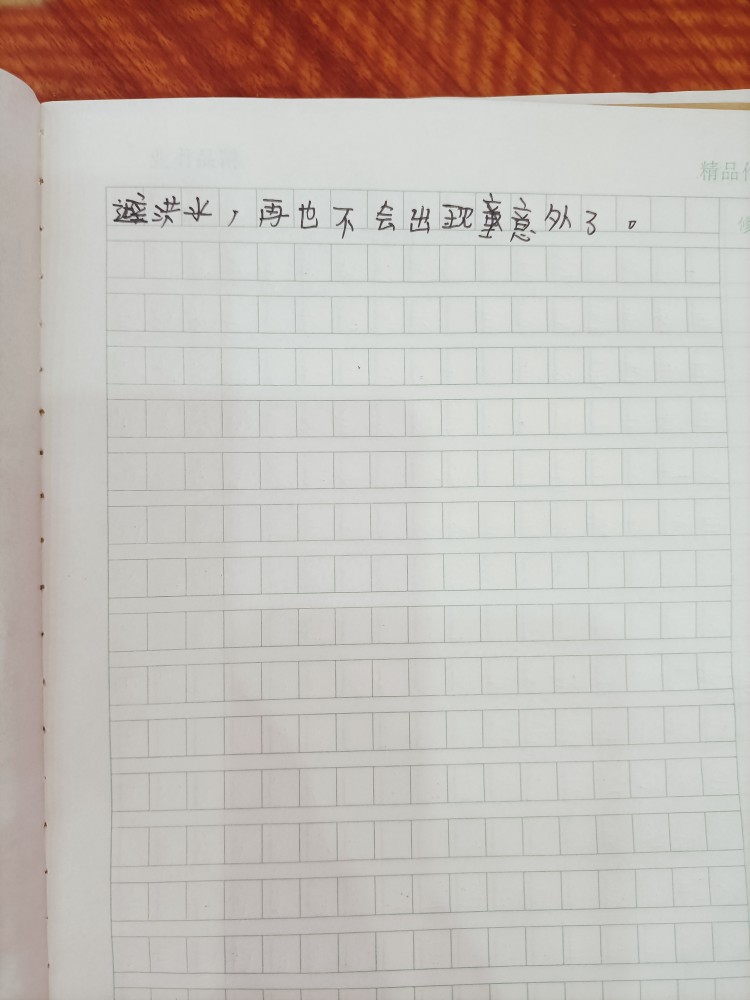 精品
避洪水，再也不会出现意外了。